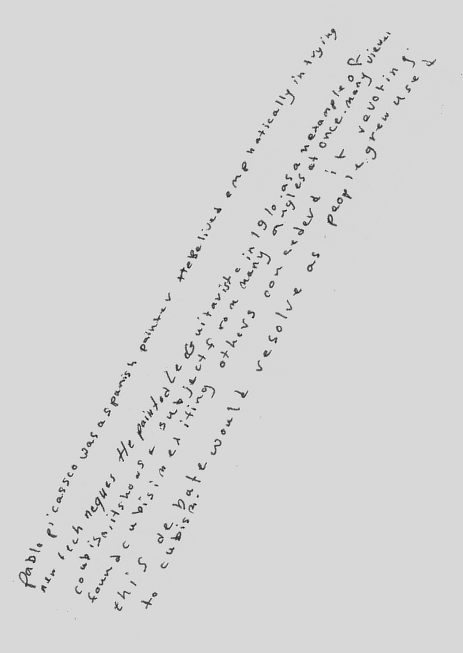 Pablo picassco was a spanish painter HeBelived emphatically in trying
new techneques He painted Le Guitariste in 1910. as an example of
coubism, it shows a subject from many angles at once. Many view
found cubisim exiting others concederd it revoting.
this debate would resolve as people grew used
to cubism.